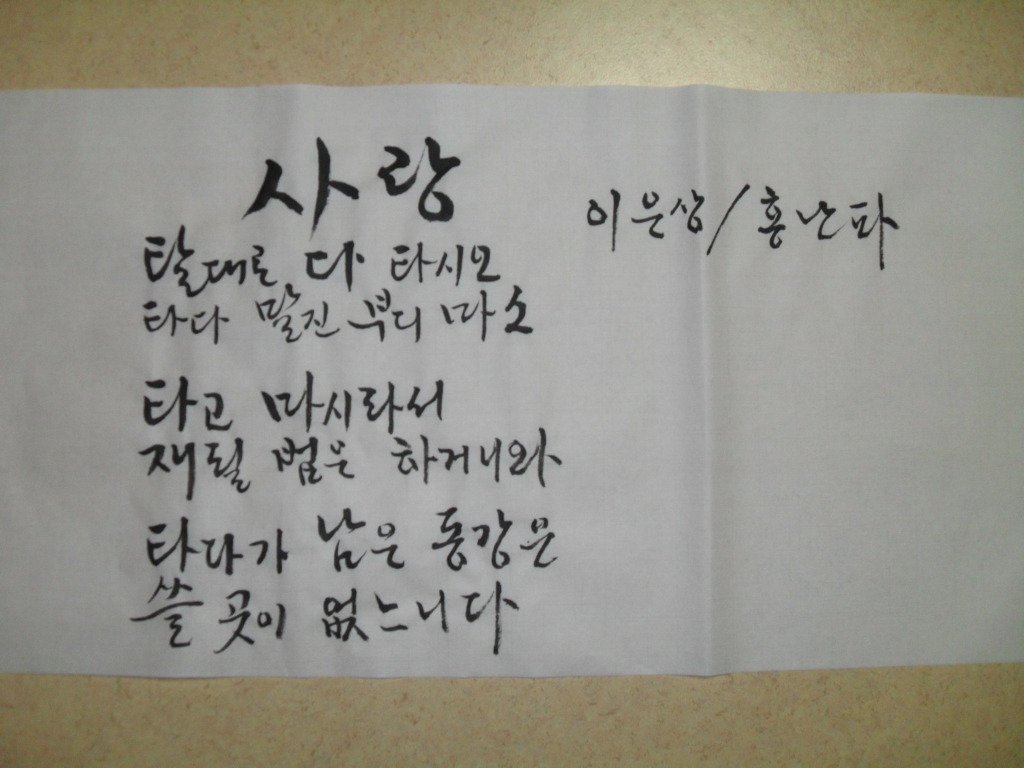 사랑
이은상/홍난파
탈대로 다 타시오
타다 말진 부디 마소
타고 마시라서
재될 법은 하거니와
타다가 남은 동강은
쓸 곳이 없느니다